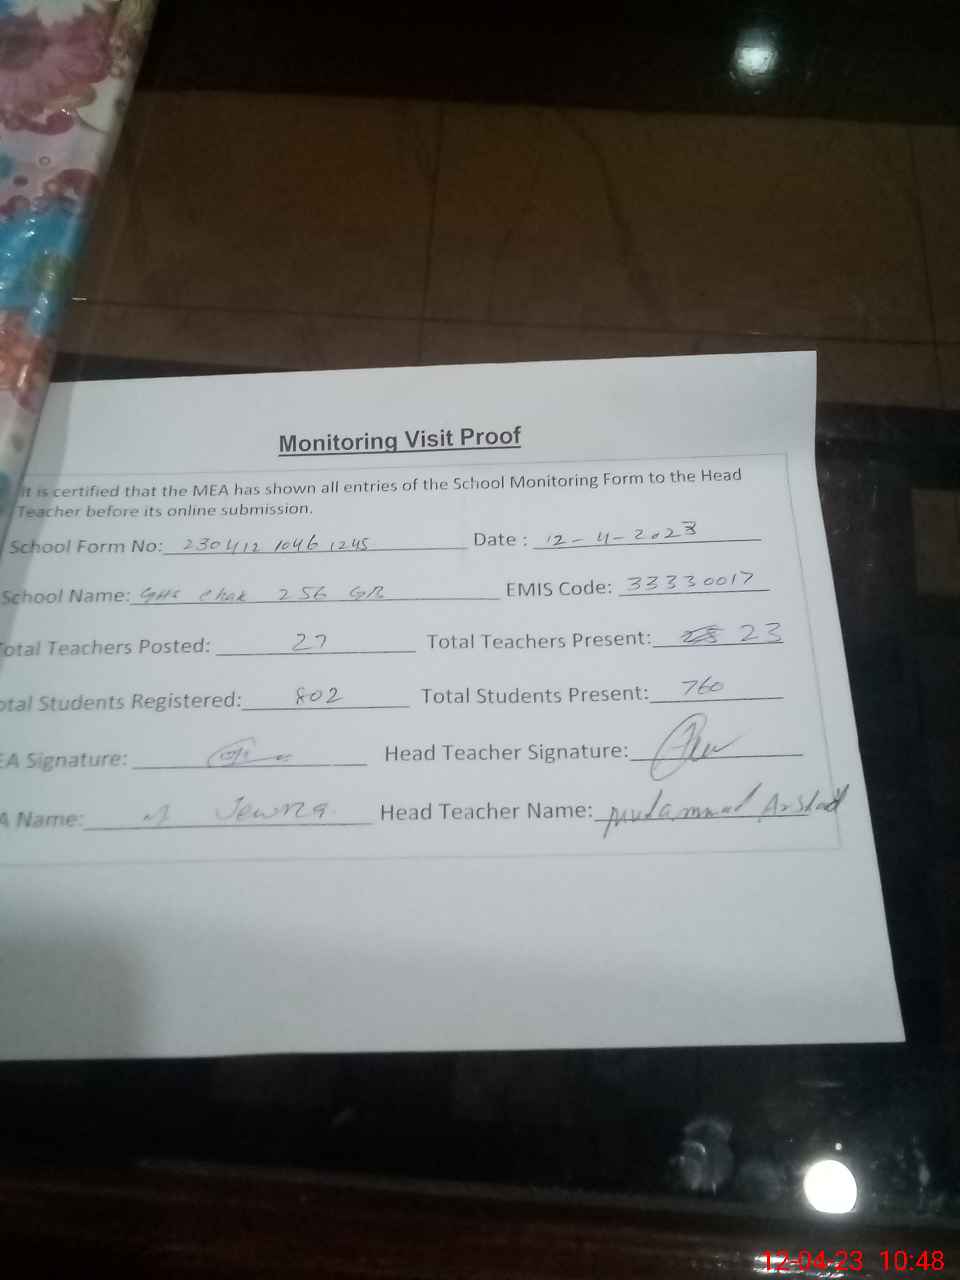 Monitoring Visit Proof
It is certified that the MEA has shown all entries of the School Monitoring Form to the Head
Teacher before its online submission.
School Form No: 230412 1046 1245 Date : 12-4-2023
School Name: GHS Chak 256 GB EMIS Code: 33330017
Total Teachers Posted: 27 Total Teachers Present: 23
otal Students Registered: 802 Total Students Present: 760
EA Signature: Head Teacher Signature:
A Name: M Head Teacher Name: Muhammad Arshad
12-04-23 10:48